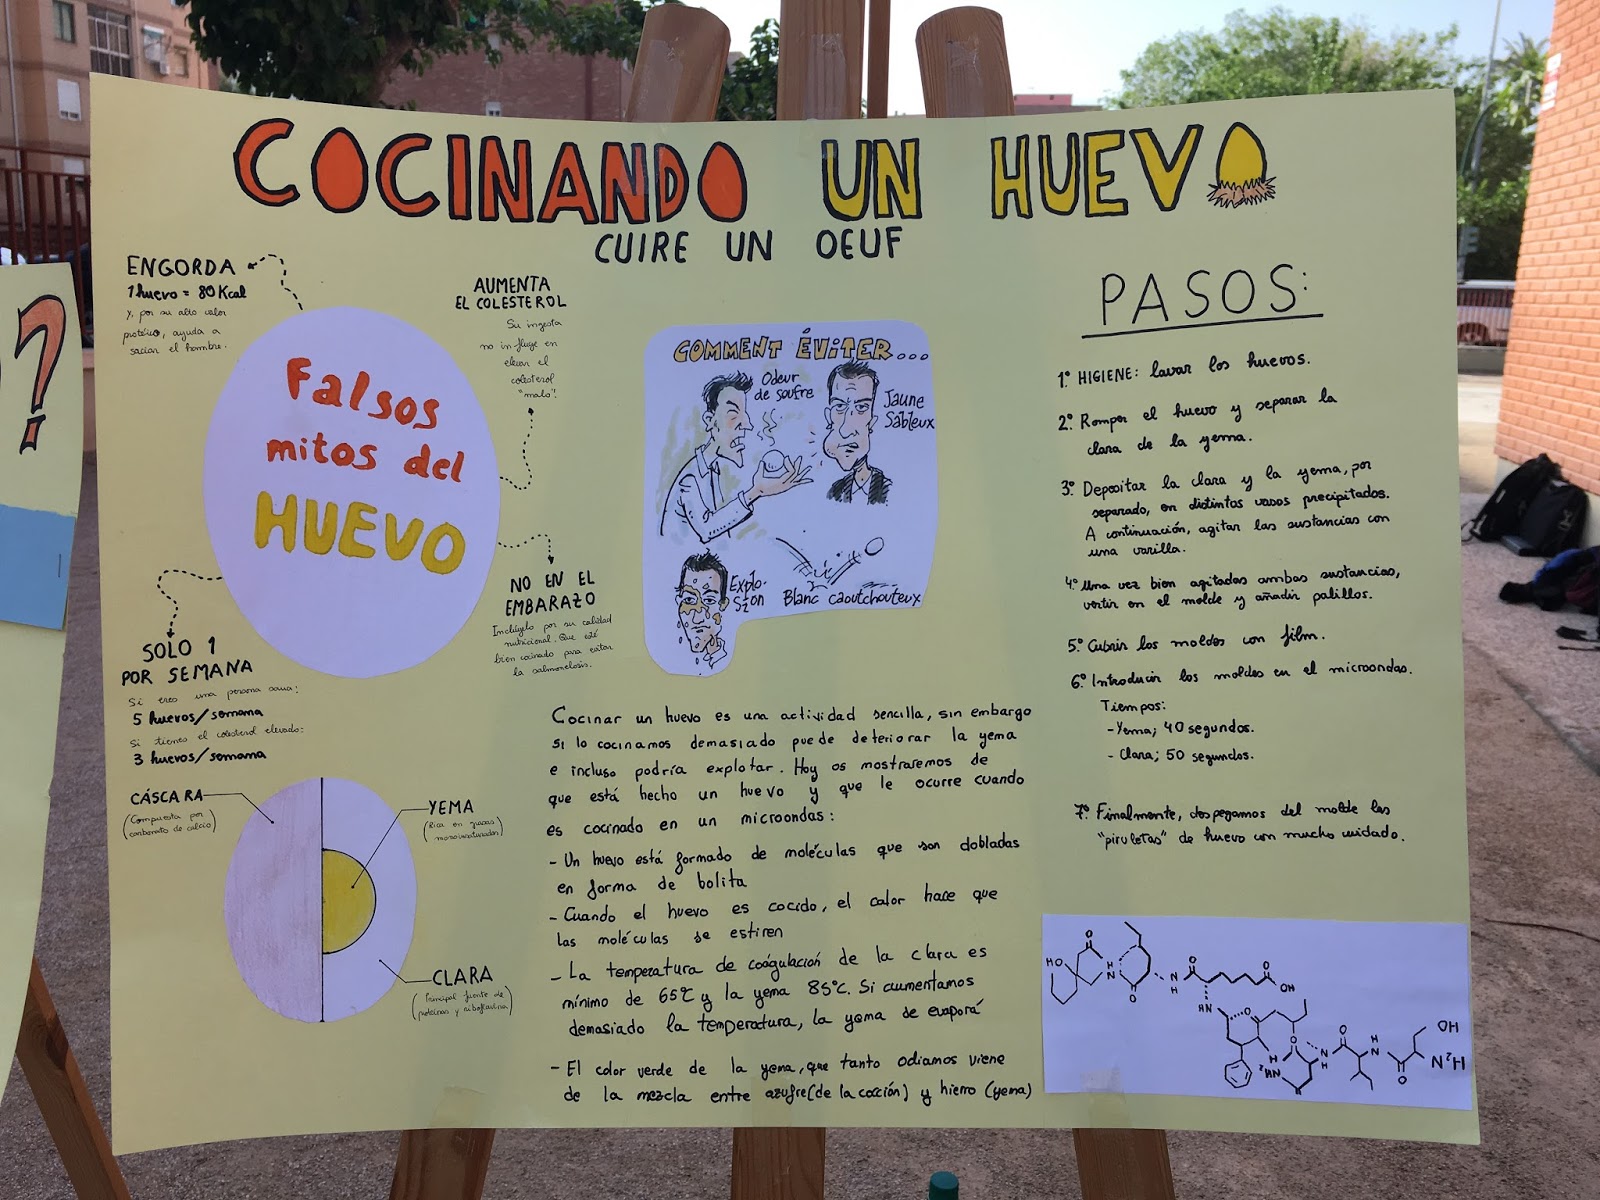 COCINANDO UN HUEVO
CUIRE UN OEUF
ENGORDA
1 huevo = 80 Kcal
y, por su alto valor
proteico, ayuda a
saciar el hambre.
AUMENTA
EL COLESTEROL
Su ingesta
no influye en
elevar el
colesterol
"malo".
Falsos
mitos del
HUEVO
NO EN EL
EMBARAZO
Inclúyelo por su calidad
nutricional. Que esté
bien cocinado para evitar
la salmonelosis.
SOLO 1
POR SEMANA
Si eres una persona sana:
5 huevos/semana
Si tienes el colesterol elevado:
3 huevos/semana
CÁSCARA
(Compuesta por
carbonato de calcio)
YEMA
(Rica en grasas
monoinsaturadas)
CLARA
(Principal fuente de
proteínas y riboflavina)
COMMENT ÉVITER...
Odeur
de soufre
Jaune
Sableux
Explo-
Sion
Blanc caoutchouteux
Cocinar un huevo es una actividad sencilla, sin embargo
si lo cocinamos demasiado puede deteriorar la yema
e incluso podría explotar. Hoy os mostraremos de
que está hecho un huevo y que le ocurre cuando
es cocinado en un microondas:
- Un huevo está formado de moléculas que son dobladas
en forma de bolita
- Cuando el huevo es cocido, el calor hace que
las moléculas se estiren
- La temperatura de coágulación de la clara es
mínimo de 65°C y la yema 85°C. Si aumentamos
demasiado la temperatura, la yema se evaporá
- El color verde de la yema, que tanto odiamos viene
de la mezcla entre azufre (de la cocción) y hierro (yema)
PASOS:
1º HIGIENE: lavar los huevos.
2º Romper el huevo y separar la
clara de la yema.
3º Depositar la clara y la yema, por
separado, en distintos vasos precipitados.
A continuación, agitar las sustancias con
una varilla.
4º Una vez bien agitadas ambas sustancias,
vertir en el molde y añadir palillos.
5º Cubrir los moldes con film.
6º Introducir los moldes en el microondas.
Tiempos:
- Yema; 40 segundos.
- Clara; 50 segundos.
7º Finalmente, despegamos del molde las
"piruletas" de huevo con mucho cuidado.
?